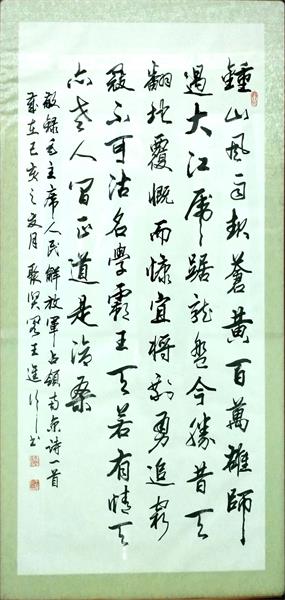 鍾山風雨起蒼黃百萬雄師
過大江虎踞龍盤今勝昔天
翻地覆慨而慷宜將剩勇追窮
寇不可沽名學霸王天若有情天
亦老人間正道是滄桑
敬録毛主席人民解放軍占領南京詩一首
歲在己亥之夏月 聚賢閣王進書